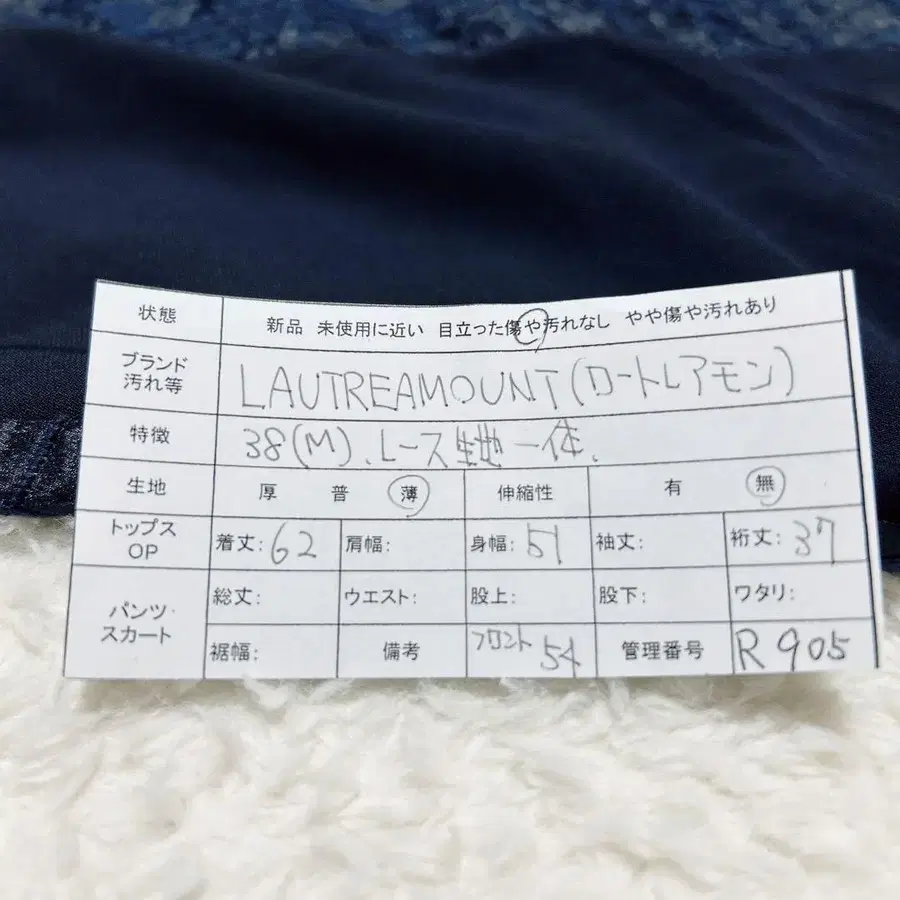 状態 新品 未使用に近い 目立った傷や汚れなし やや傷や汚れあり
ブランド
汚れ等 LAUTREAMOUNT(ロートレアモン)
特徴 38(M)、レース生地一体、
生地 厚 普 薄 伸縮性 有 無
トップス
OP 着丈:62 肩幅: 身幅:51 袖丈: 裄丈:37
パンツ・
スカート 総丈: ウエスト: 股上: 股下: ワタリ:
裾幅: 備考 フロント54 管理番号 R905